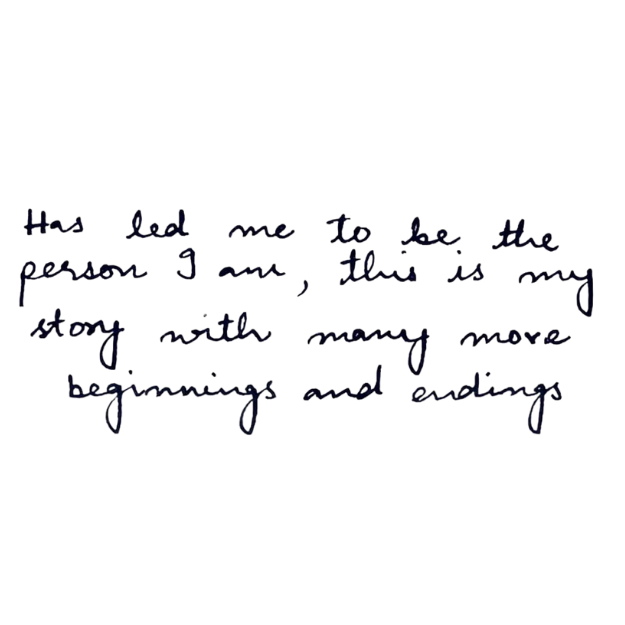 Has led me to be the
person I am, this is my
story with many more
beginnings and endings